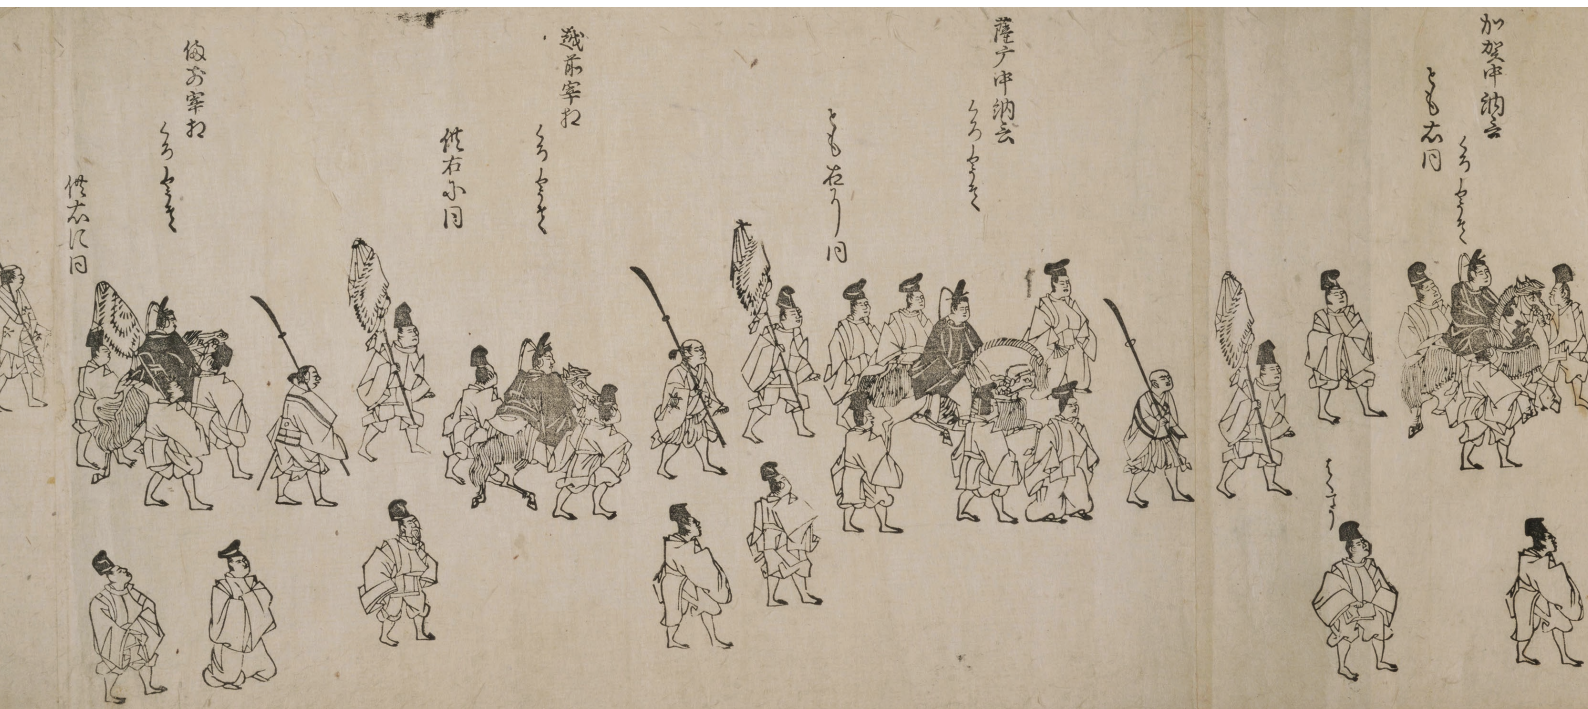 加賀中納言
くろしやうそく
とも右同
薩广中納言
くろしやうそく
とも右ニ同
越前宰相
くろしやうそく
供右に同
備前宰相
くろしやうそく
供右に同